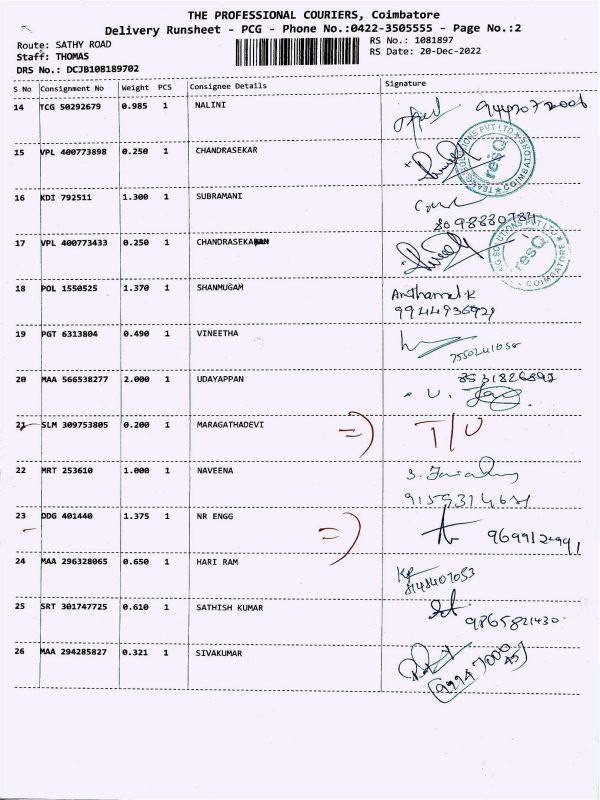 THE PROFESSIONAL COURIERS, Coimbatore
Delivery Runsheet - PCG - Phone No.:0422-3505555 - Page No.:2
Route: SATHY ROAD
RS No.: 1081897
Staff: THOMAS
RS Date: 20-Dec-2022
DRS No.: DCJB108189702
S No Consignment No Weight PCS Consignee Details Signature
14 TCG 50292679 0.985 1 NALINI
15 VPL 400773898 0.250 1 CHANDRASEKAR
TEAMG SOLUTIONS PVT LTD COIMBATORE
resQ
16 KDI 792511 1.300 1 SUBRAMANI
17 VPL 400773433 0.250 1
SOLUTIONS PVT LTD COIMBATORE
resQ
18 POL 1550525 1.370 1 SHANMUGAM
19 PGT 6313804 0.490 1 VINEETHA
20 MAA 566538277 2.000 1 UDAYAPPAN
21 SLM 309753805 0.200 1 MARAGATHADEVI => T/U
22 MRT 253610 1.000 1 NAVEENA
23 DDG 401440 1.375 1 NR ENGG =>
9699124991
24 MAA 296328065 0.650 1 HARI RAM
8148407053
25 SRT 301747725 0.610 1 SATHISH KUMAR
9865821430
26 MAA 294285827 0.321 1 SIVAKUMAR